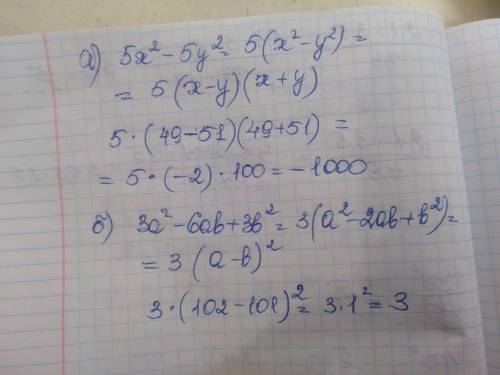 а) 5x² - 5y² = 5(x² - y²) =
= 5(x-y)(x+y)
5·(49-51)(49+51) =
= 5·(-2)·100 = -1000
б) 3a² - 6ab + 3b² = 3(a² - 2ab + b²) =
= 3(a-b)²
3·(102-101)² = 3·1² = 3